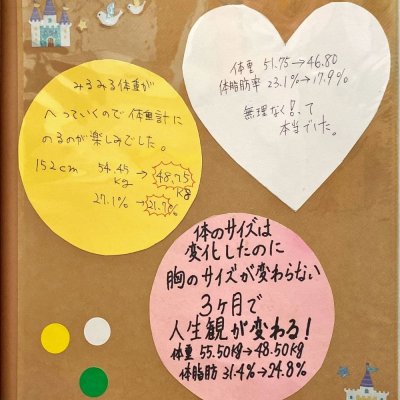 みるみる体重が
へっていくので体重計に
のるのが楽しみでした。
152cm 54.45kg→48.75kg
27.1%→21.7%
体重 51.75→46.80
体脂肪率 23.1%→17.9%
無理なく!って
本当でした。
体のサイズは
変化したのに
胸のサイズが変わらない
3ヶ月で
人生観が変わる!
体重 55.50kg→48.50kg
体脂肪 31.4%→24.8%